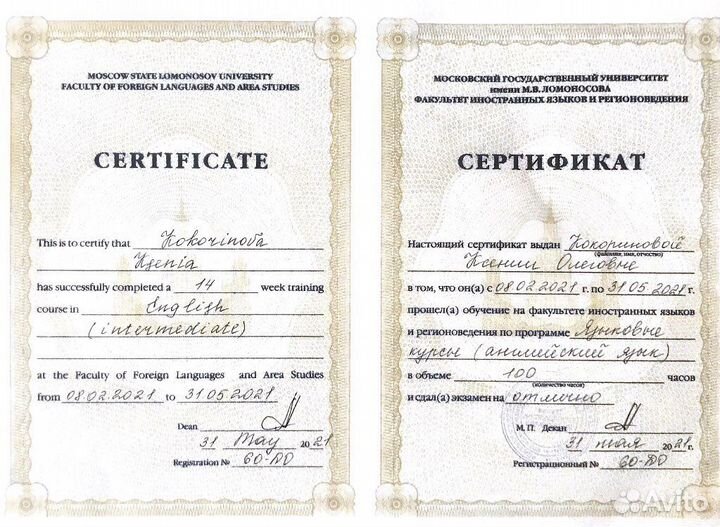 MOSCOW STATE LOMONOSOV UNIVERSITY
FACULTY OF FOREIGN LANGUAGES AND AREA STUDIES
CERTIFICATE
This is to certify that Kokorinova
Ksenia
has successfully completed a 14 week training
course in English
(intermediate)
at the Faculty of Foreign Languages and Area Studies
from 08.02.2021 to 31.05.2021
Dean
31 May 2021
Registration № 60-ДО
МОСКОВСКИЙ ГОСУДАРСТВЕННЫЙ УНИВЕРСИТЕТ
имени М.В. ЛОМОНОСОВА
ФАКУЛЬТЕТ ИНОСТРАННЫХ ЯЗЫКОВ И РЕГИОНОВЕДЕНИЯ
СЕРТИФИКАТ
Настоящий сертификат выдан Кокориновой
(фамилия, имя, отчество)
Ксении Олеговне
в том, что он(а) с 08.02.2021 г. по 31.05.2021 г.
прошел(а) обучение на факультете иностранных языков
и регионоведения по программе Языковые
курсы (английский язык)
в объеме 100 часов
(количество часов)
и сдал(а) экзамен на отлично
М. П. Декан
31 мая 2021 г.
Регистрационный № 60-ДО
Avito